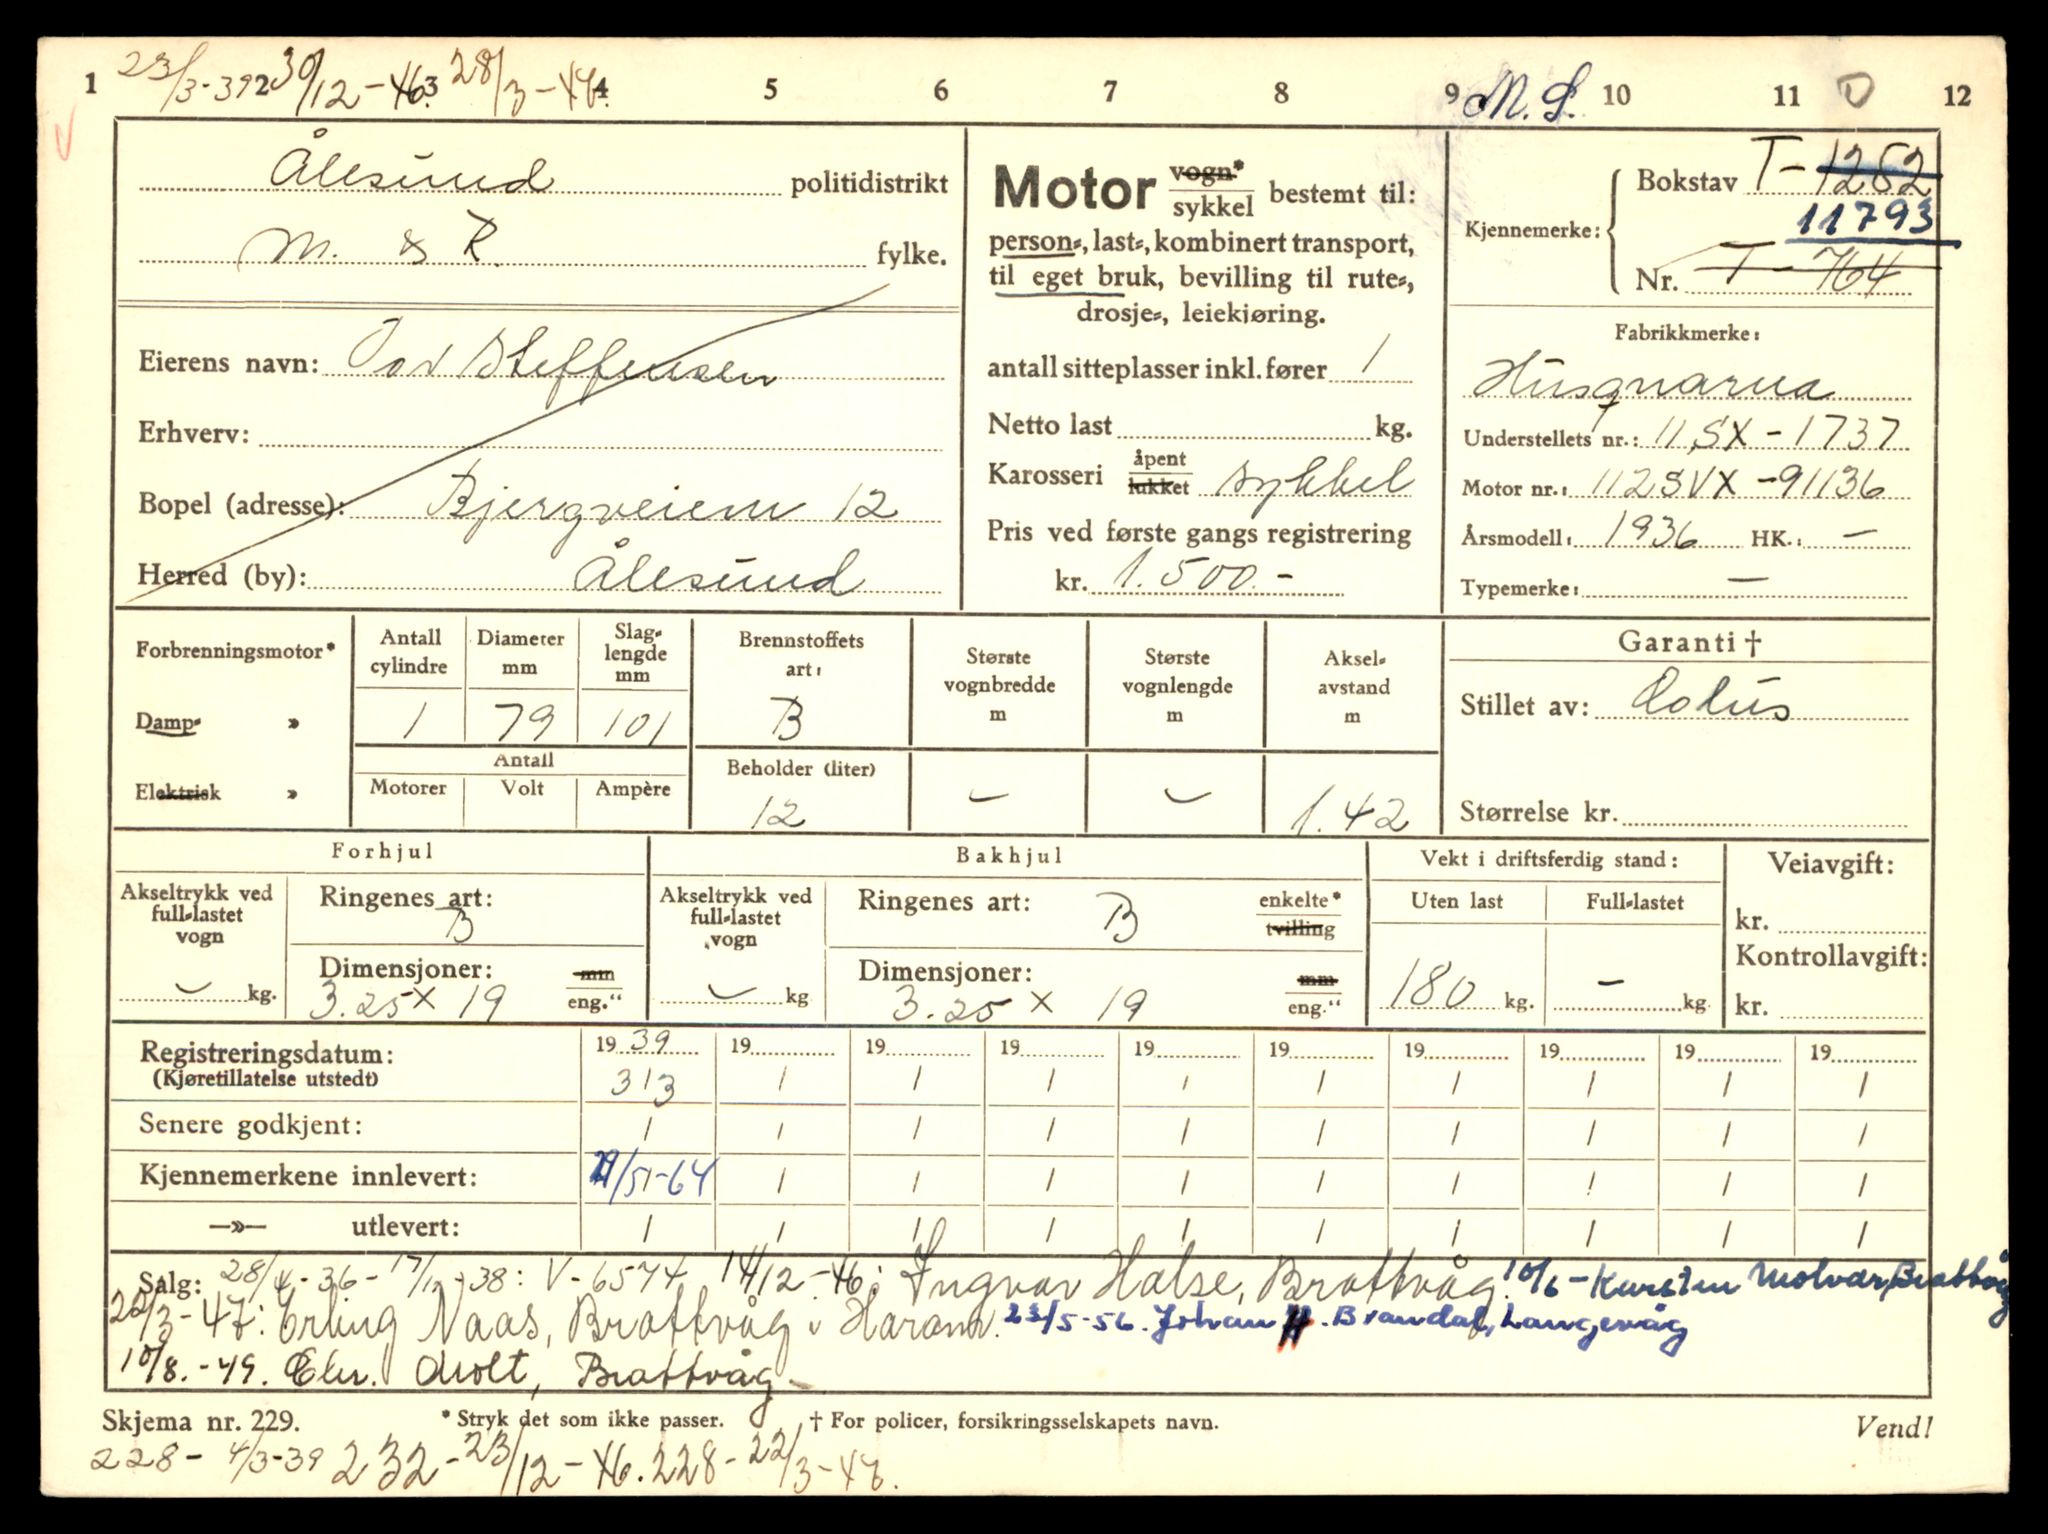 1 23/3-39 2 30/12-46. 3 28/3-47. 4 5 6 7 8 9 M.S. 10 11 D 12
V
Ålesund politidistrikt
M. & R. fylke.
Eierens navn: Steffensen
Erhverv:
Bopel (adresse): Bjergveien 12
Herred (by): Ålesund
Motor vogn* sykkel bestemt til:
person-, last-, kombinert transport,
til eget bruk, bevilling til rute-,
drosje-, leiekjøring.
antall sitteplasser inkl. fører 1
Netto last kg.
Karosseri åpent lukket sykkel
Pris ved første gangs registrering
kr. 1.500.-
Kjennemerke: Bokstav T-1262
11793
Nr. T-764
Fabrikkmerke:
Husqvarna
Understellets nr.: 11SX-1737
Motor nr.: 112SVX-91136
Årsmodell: 1936 HK.: -
Typemerke: -
Forbrenningsmotor*
Damp- »
Elektrisk »
Antall cylindre 1
Diameter mm 79
Slaglengde mm 101
Antall
Motorer Volt Ampère
Brennstoffets art: B
Beholder (liter) 12
Største vognbredde m -
Største vognlengde m -
Akselavstand m 1.42
Garanti †
Stillet av:
Størrelse kr.
Forhjul
Akseltrykk ved full-lastet vogn - kg.
Ringenes art: B
Dimensjoner: mm
3.25 x 19 eng."
Bakhjul
Akseltrykk ved full-lastet vogn - kg
Ringenes art: B enkelte* tvilling
Dimensjoner: mm
3.25 x 19 eng."
Vekt i driftsferdig stand:
Uten last Full-lastet
180 kg. - kg.
Veiavgift:
kr.
Kontrollavgift:
kr.
Registreringsdatum: 19 39 19 19 19 19 19 19 19 19 19
(Kjøretillatelse utstedt) 3/3 / / / / / / / / /
Senere godkjent: / / / / / / / / / /
Kjennemerkene innlevert: /5-64 / / / / / / / / /
—»— utlevert: / / / / / / / / / /
Salg: 28/4-36-17/12-38: V-6574 14/12-46: Ingvar Halse, Brattvåg. 10/6- Karsten Molvær, Brattvåg
22/3-47: Erling Naas, Brattvåg i Haram. 23/5-56. Johan H. Brandal, Langevåg
10/8.-49. Molt, Brattvåg -
Skjema nr. 229. * Stryk det som ikke passer. † For policer, forsikringsselskapets navn. Vend!
228- 4/3-39 232-23/12-46. 228-22/3-47.